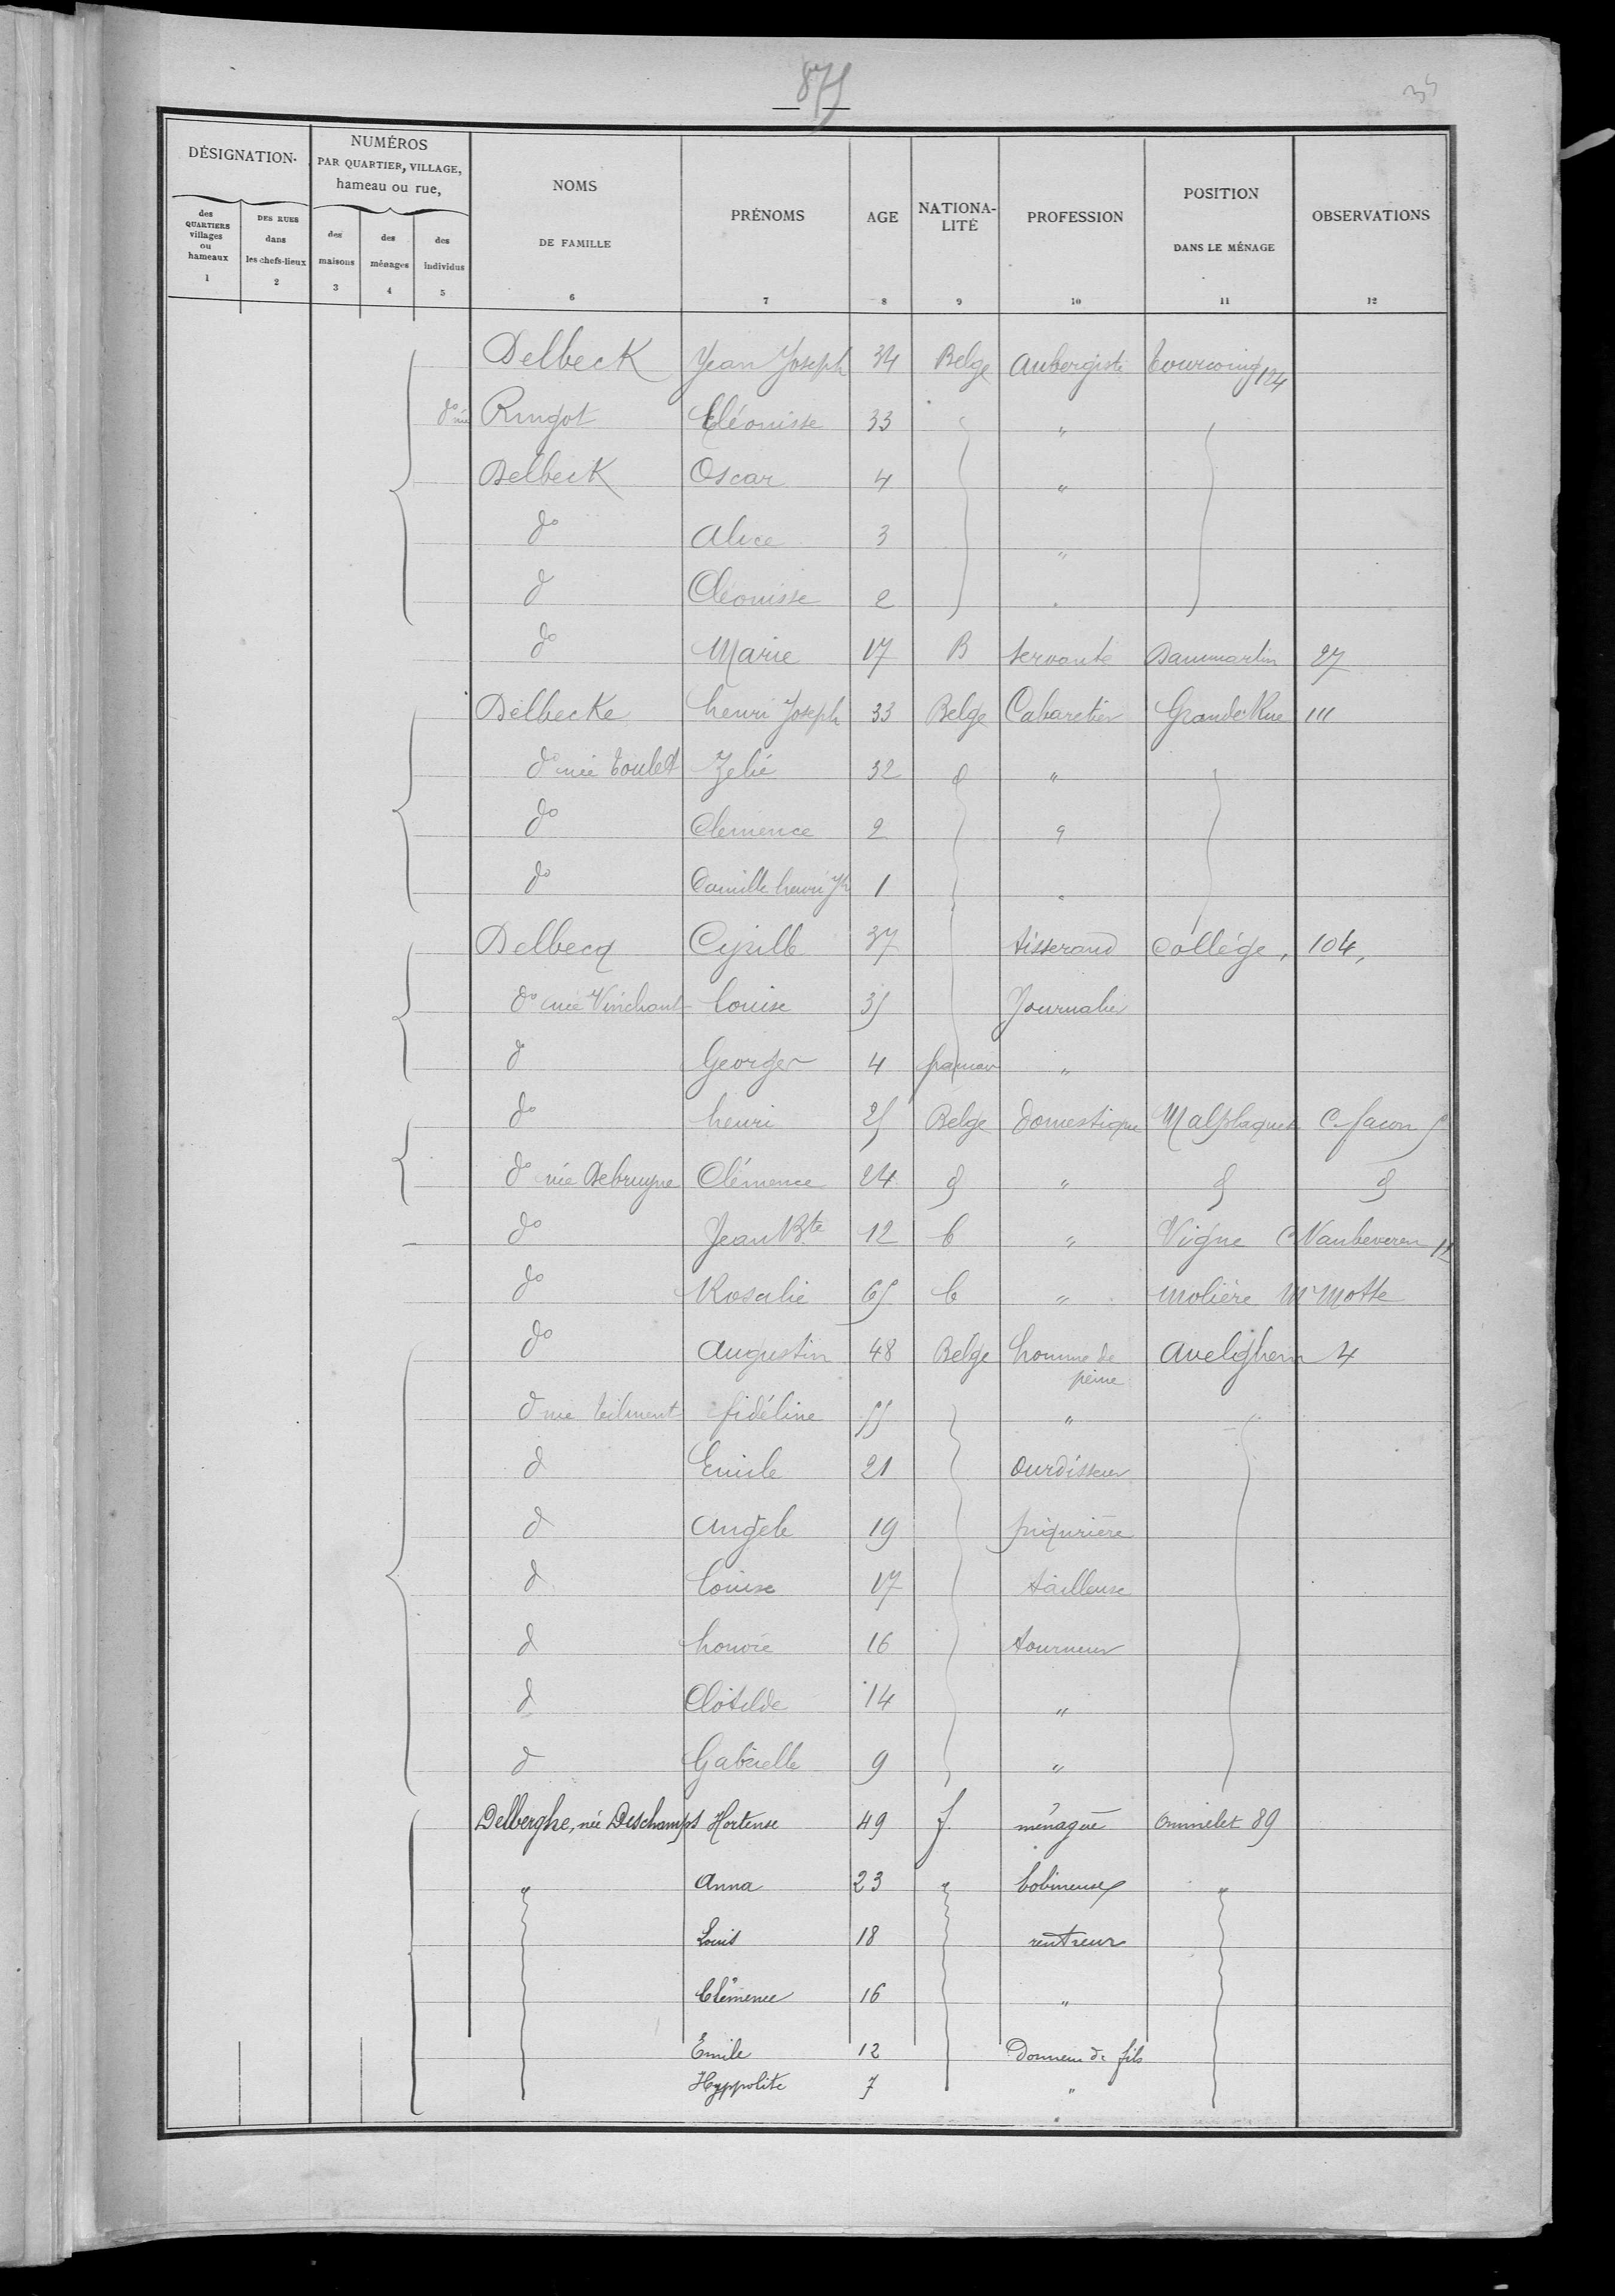 875
35
DÉSIGNATION
NUMÉROS PAR QUARTIER, VILLAGE, hameau ou rue,
NOMS DE FAMILLE
PRÉNOMS
AGE
NATIONALITÉ
PROFESSION
POSITION DANS LE MÉNAGE
OBSERVATIONS
des QUARTIERS villages ou hameaux
DES RUES dans les chefs-lieux
des maisons
des ménages
des individus
1 2 3 4 5 6 7 8 9 10 11 12
Delbeck Jean Joseph 34 Belge Aubergiste Tourcoing 124
do née Ringot Cléonisse 33 "
Delbeck Oscar 4 "
do Alice 3 "
d Cléonisse 2
do Marie 17 B servante Dammartin 27
Delbecke henri Joseph 33 Belge Cabaretier Grande Rue 111
do née Toulet Zelie 32 d "
do Clemence 2
do Camille henri Jh 1
Delbecq Cyrille 37 tisserand Collége, 104,
do née Vinchant Louise 35 Journalier
d Georges 4 francais "
do henri 25 Belge domestique Malplaquet C. facon 5
do née Debruyne Clémence 24 d " d d
do Jean Bte 12 b " Vigne C Vanbeveren 12
do Rosalie 65 b " molière Mr Motte
do Augustin 48 Belge homme de peine Avelghem 4
d née fidéline 55 "
d Emile 21 Ourdisseur
d Angele 19 piqurière
d Louise 17 tailleuse
d honoré 16 tourneur
d Clotilde 14 "
d Gabrielle 9 "
Delberghe, née Deschamps Hortense 49 f. ménagère Ommelet 89
" Anna 23 " bobineuse "
Louis 18 rentreur
Clémence 16 "
Emile 12 Donneur de fils
Hyppolite 7 "